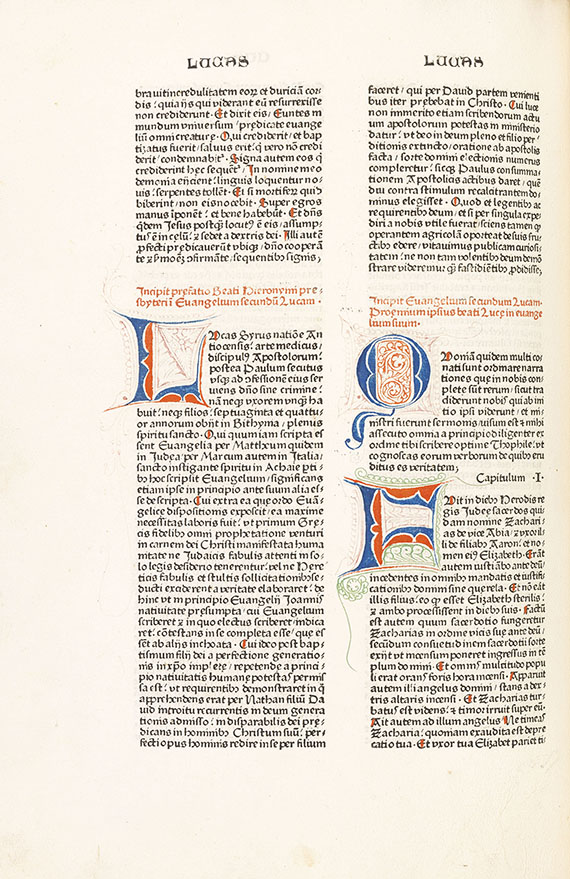 LUCAS
LUCAS
bra vit incredulitatem eorꝝ et duriciā cor⸗
dis: quia ijs qui viderant eū resurrexisse
non crediderunt. Et dixit eis, Euntes in
mundum vniuersum, predicate euange
lium omni creaturę. Qui crediderit, et bap
tizatus fuerit, saluus erit. q̄ vero nō credi
derit, condemnabit᷒. Signa autem eos q̄
crediderint hęc sequēt᷒. In nomine meo
demonia eijcient. linguis loquentur no⸗
uis. serpentes tollēt. Et si mortiferū quid
biberint, non eis nocebit. Super egros
manus iponēt, et bene habebūt. Et dn̄s
qͥdem Jesus postqͣ̄ locut᷒ ē eis, assump⸗
tus ē in cęlū, ⁊ sedet a dextris dei. Illi autē
ꝓfecti predicauerūt vbiqꝫ, dn̄o cooperā
te, ⁊ ẜmonē ꝯfirmāte, sequentibus signis;
Incipit prefatio Beati Hieronymi pre⸗
sbyteri ī Euangelium secundū Lucam.
LUcas Syrus natiōe An
tiocensis, arte medicus,
discipulꝰ Apostolorum,
postea Paulum secutus
vsqꝫ ad ꝯfessionē eius ser
uiens dn̄o sine crimine.
nā neqꝫ vxorem vnqͣ̄ ha
buit, neqꝫ filios, septuaginta et quattu⸗
or annorum obijt in Bithynia, plenus
spiritu sancto. Qui quum iam scripta es
sent Euangelia, per Mattheum quidem
in Judęa, per Marcum autem in Italia,
sancto instigante spiritu in Achaie ꝑti⸗
bus hoc scripsit Euangelium, significans
etiam ipse in principio ante suum alia es⸗
se descripta. Cui extra ea que ordo Euā⸗
gelicę dispositiōis exposcit, ea maxime
necessitas laboris fuit, vt primum Gręe
cis fidelibus omni prophetatione venturi
in carnem dei Christi manifestata huma
nitate, ne Judaicis fabulis attenti, in so⸗
lo legis desiderio tenerentur, vel ne Here
ticis fabulis et stultis sollicitationibus se⸗
ducti excederent a veritate, elaboraret, de
hinc vt in principio Euangelij Joannis
natiuitate presumpta, cui Euangelium
scriberet, ⁊ in quo electus scriberet, indica
ret, cōtestans in se completa esse, que es⸗
sēt ab alijs inchoata. Cui ideo post bap⸗
tismum filij dei, a perfectione generatio⸗
nis in xp̄o implete, repetende a princi⸗
pio natiuitatis humanę potestas permis
sa est, vt requirentibus demonstraret in q̄
apprehendens erat per Nathan filiū Da
uid introitu recurrentis in deum genera
tionis admisso, indisparabilis dei, pre⸗
dicans in hominibus Christum suū, per⸗
fecti opus hominis redire in se per filium
faceret, qui per Dauid patrem venienti
bus iter prębebat in Christo. Cui lucę
non immerito etiam scribendorum actuū
um apostolorum potestas in ministerio
datur, vt deo in deum pleno et filio per⸗
ditionis extincto, oratione ab apostolis
facta, sorte domini electionis numerus
compleretur. sicqꝫ Paulus consumma⸗
tionem Apostolicis actibus daret, quē
diu contra stimulum recalcitrantem do⸗
minus elegisset. Quod et legentibus ac
requirentibus deum, et si per singula expe⸗
diri a nobis vtile fuerat, sciens tamen qͥ
operantem agricolā oporteat de suis fru⸗
ctibus edere, vitauimus publicam curiosi⸗
tatem, ne non tam volentibus deum demō
strare videremur, qͣ̄ fastidiētibus ꝓdidisse;
Incipit Euangelium secundum Lucam.
Proęmium ipsius beati Lucę in euange
lium suum.
QUoniā quidem multi co⸗
nati sunt ordinare narra
tiones, que in nobis com⸗
plete sūt rerum, sicut tra
diderunt nobis, qui ab ini
tio ipsi viderunt, et mi⸗
nistri fuerunt sermonis, visum est ⁊ mihi
assecuto omnia a principio diligenter ex
ordine tibi scribere optime Theophile, vt
cognoscas eorum verborum de quibus eru
ditus es veritatem;
Capitulum .I.
FUit in diebus Herodis re
gis Judeę sacerdos qui⸗
dam nomine Zachari⸗
as de vice Abia, ⁊ vxor il
li de filiabus Aaron, et no⸗
men eiꝰ Elizabeth. Erāt
autem iusti ambo ante deū,
incedentes in omnibus mandatis et iustifi⸗
cationibus domini sine querela. Et nō erāt
illis filius, eo qͥ esset Elizabeth sterilis,
⁊ ambo processissent in diebus suis. Factū
est autem quum sacerdotio fungeretur
Zacharias in ordine vicis suę ante deū,
secūdum consuetudinem sacerdotij sorte
exijt vt incensum poneret ingressus in tē
plum domini. Et omnis multitudo popu
li erat orans foris hora incensi. Apparuit
autem illi angelus domini, stans a dex⸗
tris altaris incensi. Et Zacharias tur⸗
batus est videns, ⁊ timor irruit super eū.
Ait autem ad illum angelus, Ne timeas
Zacharia, quoniam exaudita est depre
catio tua. Et vxor tua Elizabet pariet ti⸗